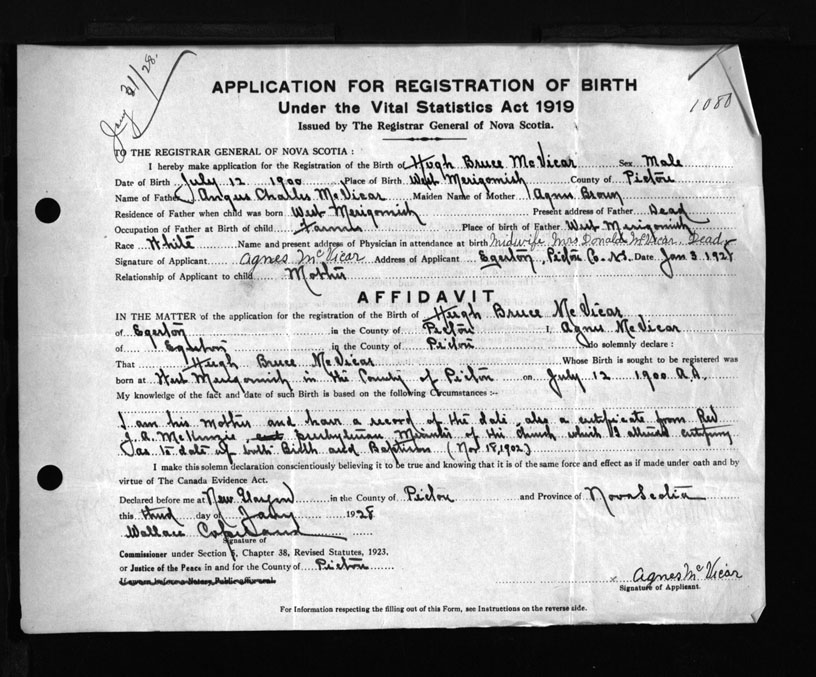 Jany 31/28.
1080
APPLICATION FOR REGISTRATION OF BIRTH
Under the Vital Statistics Act 1919
Issued by The Registrar General of Nova Scotia.
TO THE REGISTRAR GENERAL OF NOVA SCOTIA :
I hereby make application for the Registration of the Birth of Hugh Bruce McVicar Sex Male
Date of Birth July 12 1900 Place of Birth West Merigomish County of Pictou
Name of Father Angus Charles McVicar Maiden Name of Mother Agnes Brown
Residence of Father when child was born West Merigomish Present address of Father Dead
Occupation of Father at Birth of child Farmer Place of birth of Father West Merigomish
Race White Name and present address of Physician in attendance at birth Midwife Mrs Donald McVicar Dead
Signature of Applicant Agnes McVicar Address of Applicant Egerton, Pictou Co. N.S. Date Jan 3 1928
Relationship of Applicant to child Mother
AFFIDAVIT
IN THE MATTER of the application for the registration of the Birth of Hugh Bruce McVicar
of Egerton in the County of Pictou I, Agnes McVicar
of Egerton in the County of Pictou do solemnly declare :
That Hugh Bruce McVicar Whose Birth is sought to be registered was
born at West Merigomish in the County of Pictou on July 12 1900 A.D.
My knowledge of the fact and date of such Birth is based on the following Circumstances :-
I am his mother and have a record of the date also a certificate from Rev
J. R. McKenzie Presbyterian Minister of the Church which I attend certifying
as to date of both Birth and Baptism (Nov 18, 1902)
I make this solemn declaration conscientiously believing it to be true and knowing that it is of the same force and effect as if made under oath and by
virtue of The Canada Evidence Act.
Declared before me at New Glasgow in the County of Pictou and Province of Nova Scotia
this third day of Jany 1928
Wallace Copeland
Signature of
Commissioner under Section 6, Chapter 38, Revised Statutes, 1923.
or Justice of the Peace in and for the County of Pictou
x Agnes McVicar
Signature of Applicant.
For Information respecting the filling out of this Form, see Instructions on the reverse side.